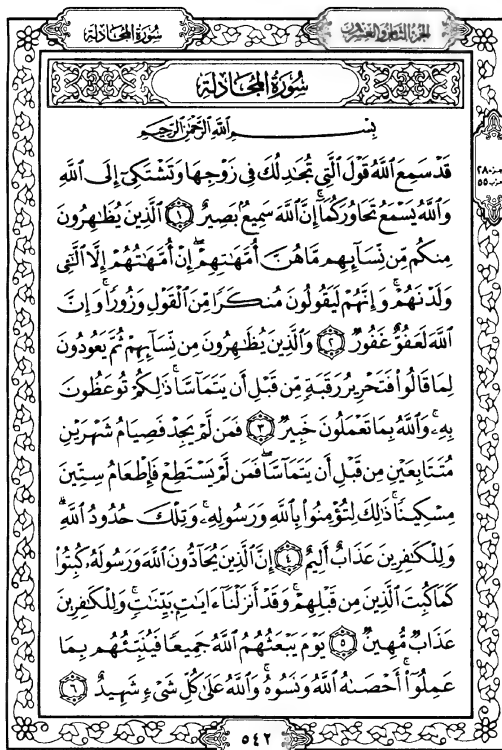 سُورَةُ المُجَادلة
الجزء الثامن والعشرون
سُورَةُ المُجَادلة
بِسْمِ اللَّهِ الرَّحْمَٰنِ الرَّحِيمِ
قَدْ سَمِعَ اللَّهُ قَوْلَ الَّتِي تُجَٰدِلُكَ فِي زَوْجِهَا وَتَشْتَكِىٓ إِلَى اللَّهِ
وَاللَّهُ يَسْمَعُ تَحَاوُرَكُمَآ إِنَّ اللَّهَ سَمِيعٌۢ بَصِيرٌ ١ الَّذِينَ يُظَٰهِرُونَ
مِنكُم مِّن نِّسَآئِهِم مَّا هُنَّ أُمَّهَٰتِهِمْ ۖ إِنْ أُمَّهَٰتُهُمْ إِلَّا الَّٰٓـِٔى
وَلَدْنَهُمْ ۚ وَإِنَّهُمْ لَيَقُولُونَ مُنكَرًا مِّنَ الْقَوْلِ وَزُورًا ۚ وَإِنَّ
اللَّهَ لَعَفُوٌّ غَفُورٌ ٢ وَالَّذِينَ يُظَٰهِرُونَ مِن نِّسَآئِهِمْ ثُمَّ يَعُودُونَ
لِمَا قَالُوا۟ فَتَحْرِيرُ رَقَبَةٍ مِّن قَبْلِ أَن يَتَمَآسَّا ۚ ذَٰلِكُمْ تُوعَظُونَ
بِهِۦ ۚ وَاللَّهُ بِمَا تَعْمَلُونَ خَبِيرٌ ٣ فَمَن لَّمْ يَجِدْ فَصِيَامُ شَهْرَيْنِ
مُتَتَابِعَيْنِ مِن قَبْلِ أَن يَتَمَآسَّا ۖ فَمَن لَّمْ يَسْتَطِعْ فَإِطْعَامُ سِتِّينَ
مِسْكِينًا ۚ ذَٰلِكَ لِتُؤْمِنُوا۟ بِاللَّهِ وَرَسُولِهِۦ ۚ وَتِلْكَ حُدُودُ اللَّهِ ۗ
وَلِلْكَٰفِرِينَ عَذَابٌ أَلِيمٌ ٤ إِنَّ الَّذِينَ يُحَآدُّونَ اللَّهَ وَرَسُولَهُۥ كُبِتُوا۟
كَمَا كُبِتَ الَّذِينَ مِن قَبْلِهِمْ ۚ وَقَدْ أَنزَلْنَآ ءَايَٰتٍۭ بَيِّنَٰتٍ ۚ وَلِلْكَٰفِرِينَ
عَذَابٌ مُّهِينٌ ٥ يَوْمَ يَبْعَثُهُمُ اللَّهُ جَمِيعًا فَيُنَبِّئُهُم بِمَا
عَمِلُوٓا۟ ۚ أَحْصَىٰهُ اللَّهُ وَنَسُوهُ ۚ وَاللَّهُ عَلَىٰ كُلِّ شَىْءٍ شَهِيدٌ ٦
٥٤٢